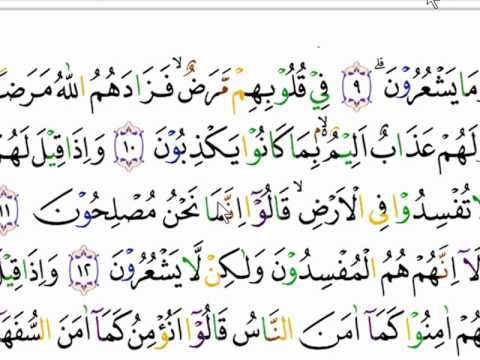 وَمَا يَشْعُرُوْنَ ۗ ٩ فِيْ قُلُوْبِهِمْ مَّرَضٌۙ فَزَادَهُمُ اللّٰهُ مَرَضًا
وَلَهُمْ عَذَابٌ اَلِيْمٌ ۢ ەۙ بِمَا كَانُوْا يَكْذِبُوْنَ ١٠ وَاِذَا قِيْلَ لَهُمْ
لَا تُفْسِدُوْا فِى الْاَرْضِۙ قَالُوْٓا اِنَّمَا نَحْنُ مُصْلِحُوْنَ ١١
اَلَآ اِنَّهُمْ هُمُ الْمُفْسِدُوْنَ وَلٰكِنْ لَّا يَشْعُرُوْنَ ١٢ وَاِذَا قِيْلَ
لَهُمْ اٰمِنُوْا كَمَآ اٰمَنَ النَّاسُ قَالُوْٓا اَنُؤْمِنُ كَمَآ اٰمَنَ السُّفَهَاۤءُ